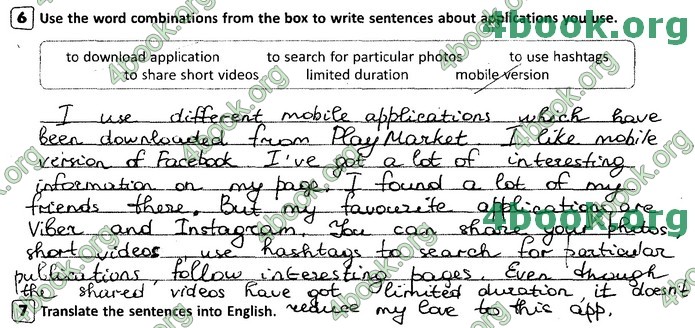 6 Use the word combinations from the box to write sentences about applications you use.
to download application to search for particular photos to use hashtags
to share short videos limited duration mobile version
I use different mobile applications which have
been downloaded from PlayMarket I like mobile
version of Facebook I've got a lot of interesting
information on my page. I found a lot of my
friends there. But my favourite application are
Viber and Instagram. You can share your photos,
short videos, use hashtags to search for particular
publications, follow interesting pages. Even though
the shared videos have got limited duration, it doesn't
7 Translate the sentences into English. reduce my love to this app.
4book.org
4book.org
4book.org